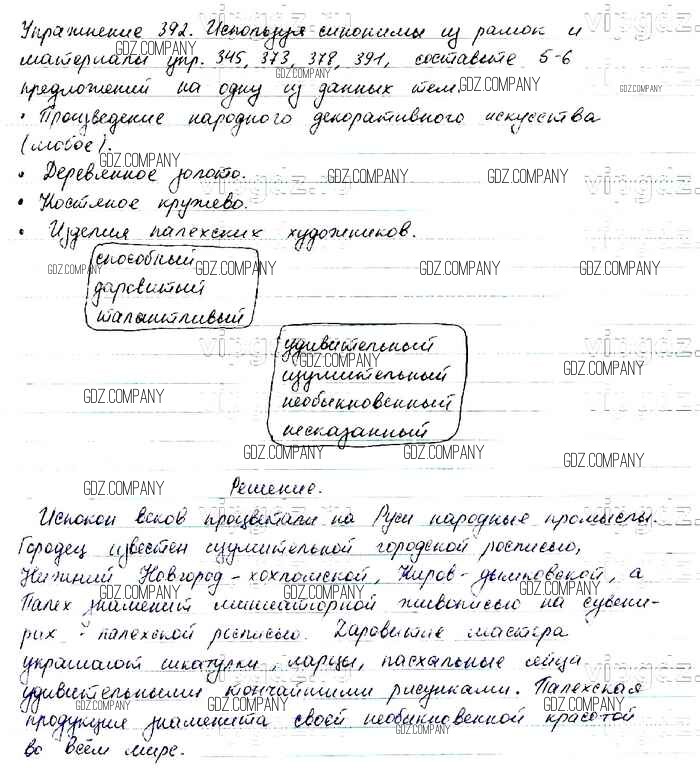 Упражнение 392. Используя синонимы из рамок и
материалы упр. 345, 373, 378, 391, составьте 5-6
предложений на одну из данных тем.
• Произведение народного декоративного искусства
(любое).
• Деревянное золото.
• Костяное кружево.
• Изделия палехских художников.
способный
даровитый
талантливый
удивительный
изумительный
необыкновенный
несказанный
Решение.
Испокон веков процветали на Руси народные промыслы.
Городец известен изумительной городской росписью,
Нижний Новгород - хохломской, Киров - дымковской, а
Палех знаменит миниатюрной живописью на сувени-
рых - палехской росписью. Даровитые мастера
украшают шкатулки, ларцы, пасхальные яйца
удивительными тончайшими рисунками. Палехская
продукция знаменита своей необыкновенной красотой
во всём мире.
GDZ.COMPANY
vipgdz.ru